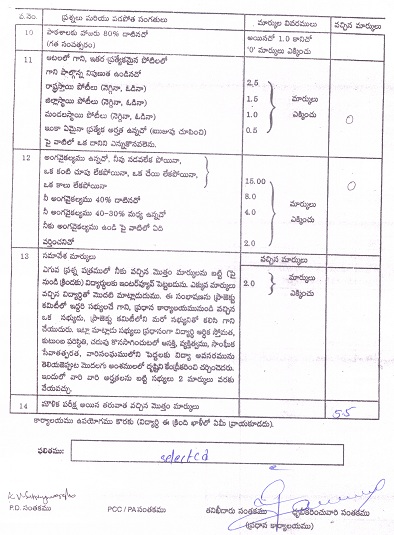 వ.నెం. ప్రశ్నలు మరియు పదపోత సంగతులు మార్కుల వివరములు వచ్చిన మార్కులు
10 పాఠశాలకు హాజరు 80% దాటినదో అయినదో 1.0 కానిదో
(గత సంవత్సరం) '0' మార్కులు ఎక్కించు
11 ఆటలలో గాని, ఇతర ప్రత్యేకమైన పోటీలలో
గాని పాల్గొన్న నిపుణుత ఉండినదో
రాష్ట్రస్థాయి పోటీలు (నెగ్గినా, ఓడినా) 2.5
జిల్లాస్థాయి పోటీలు (నెగ్గినా, ఓడినా) 1.5 మార్కులు
మండలస్థాయి పోటీలు (నెగ్గినా, ఓడినా) 1.0 ఎక్కించు 0
ఇంకా ఏమైనా ప్రత్యేక అర్హత ఉన్నదో (ఋజువు చూపించి) 0.5
పై వాటిలో ఒక దానిని ఎన్నుకొనవలెను.
12 అంగవైకల్యము ఉన్నదో, నీవు నడవలేక పోయినా,
ఒక కంటి చూపు లేకపోయినా, ఒక చేయి లేకపోయినా, 15.00 0
ఒక కాలు లేకపోయినా
నీ అంగవైకల్యము 40% దాటినదో 8.0 మార్కులు
నీ అంగవైకల్యము 40-30% మధ్య ఉన్నదో 4.0 ఎక్కించు
నీకు అంగవైకల్యము ఉండి పై వాటిలో ఏది
వర్తించనిదో 2.0
13 సమావేశ మార్కులు వచ్చిన మార్కులు
ఎగువ ప్రశ్న పత్రములో నీకు వచ్చిన మొత్తం మార్కులను బట్టి (పై
నుండి క్రిందకు) విద్యార్థులకు ఇంటర్వ్యూవ్ పెట్టబడును. ఎక్కువ మార్కులు 2.0 మార్కులు
వచ్చిన విద్యార్థితో మొదట మాట్లాడుదుము. ఈ సంభాషణను ప్రాజెక్టు ఎక్కించు
కమిటీలో ఇద్దరి సభ్యులచే గాని, ప్రధాన కార్యాలయమునుండి వచ్చిన
ఒక సభ్యుడు, ప్రాజెక్టు కమిటీలోని మరో సభ్యునితో కలిసి గాని
చేయుదురు. ఇట్లా మాట్లాడు సభ్యులు ప్రధానంగా విద్యార్థి ఆర్థిక స్తోమత,
కుటుంబ పరిస్థితి, చదువు కొనసాగించుటలో ఆసక్తి, వ్యక్తిత్వము, సాంఘీక
సేవాతత్పరత, వారిసంఘములోని పెద్దలకు విద్యా అవసరమును
తెలియజెప్పుట మొదలగు అంశములలో దృష్టిని కేంద్రీకరించి చర్చించెదరు.
ఇందులో వారి వారి అర్హతలను బట్టి సభ్యులు 2 మార్కులు వరకు
వేయవచ్చు.
14 మౌఖిక పరీక్ష అయిన తరువాత వచ్చిన మొత్తం మార్కులు 5.5
కార్యాలయము ఉపయోగము కొరకు (విద్యార్థి ఈ క్రింది ఖాళీలో ఏమీ వ్రాయకూడదు).
ఫలితము: selected
P.D. సంతకము PCC / PA సంతకము తనిఖీదారు సంతకము ధృవీకరించువారి సంతకము
(ప్రధాన కార్యాలయము)